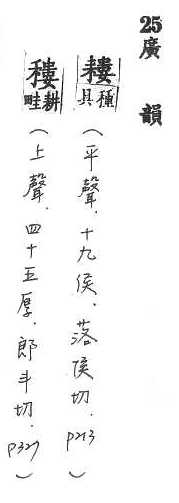 25廣韻
耬種具(平聲.十九侯.落侯切.P213)
䅹耕畦(上聲.四十五厚.郎斗切.P327)